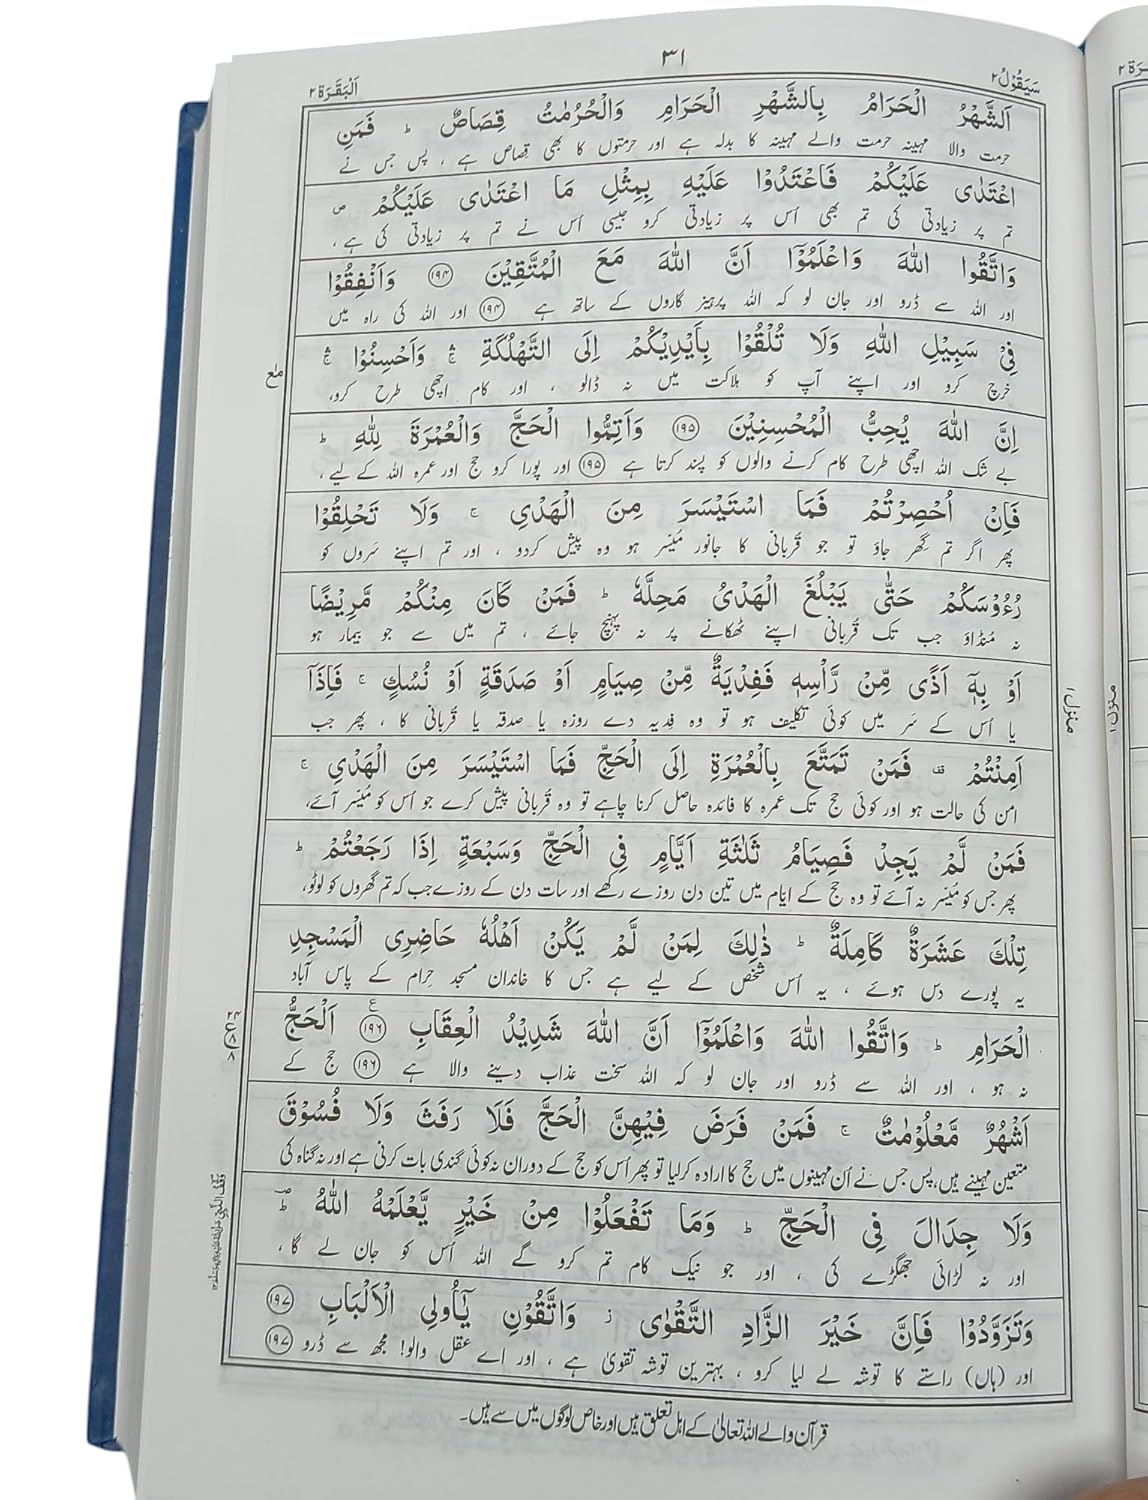 سَيَقُوْلُ ٢
٣١
اَلْبَقَرَة ٢
اَلشَّهْرُ الْحَرَامُ بِالشَّهْرِ الْحَرَامِ وَالْحُرُمٰتُ قِصَاصٌ ؕ فَمَنِ
حرمت والا مہینہ حرمت والے مہینہ کا بدلہ ہے اور حرمتوں کا بھی قصاص ہے ، پس جس نے
اعْتَدٰى عَلَيْكُمْ فَاعْتَدُوْا عَلَيْهِ بِمِثْلِ مَا اعْتَدٰى عَلَيْكُمْ ۪
تم پر زیادتی کی تم بھی اُس پر زیادتی کرو جیسی اُس نے تم پر زیادتی کی ہے ،
وَاتَّقُوا اللّٰهَ وَاعْلَمُوْٓا اَنَّ اللّٰهَ مَعَ الْمُتَّقِيْنَ ﴿۱۹۴﴾ وَاَنْفِقُوْا
اور اللہ سے ڈرو اور جان لو کہ اللہ پرہیز گاروں کے ساتھ ہے ﴿۱۹۴﴾ اور اللہ کی راہ میں
فِىْ سَبِيْلِ اللّٰهِ وَلَا تُلْقُوْا بِاَيْدِيْكُمْ اِلَى التَّهْلُكَةِ ۛۚ وَاَحْسِنُوْا ۛۚ
خرچ کرو اور اپنے آپ کو ہلاکت میں نہ ڈالو ، اور کام اچھی طرح کرو،
مع
اِنَّ اللّٰهَ يُحِبُّ الْمُحْسِنِيْنَ ﴿۱۹۵﴾ وَاَتِمُّوا الْحَجَّ وَالْعُمْرَةَ لِلّٰهِ ؕ
بے شک اللہ اچھی طرح کام کرنے والوں کو پسند کرتا ہے ﴿۱۹۵﴾ اور پورا کرو حج اور عمرہ اللہ کے لیے ،
فَاِنْ اُحْصِرْتُمْ فَمَا اسْتَيْسَرَ مِنَ الْهَدْىِ ۚ وَلَا تَحْلِقُوْا
پھر اگر تم گِھر جاؤ تو جو قربانی کا جانور مُیَسّر ہو وہ پیش کردو ، اور تم اپنے سَروں کو
رُءُوْسَكُمْ حَتّٰى يَبْلُغَ الْهَدْىُ مَحِلَّهٗ ؕ فَمَنْ كَانَ مِنْكُمْ مَّرِيْضًا
نہ مُنڈاؤ جب تک قربانی اپنے ٹھکانے پر نہ پہنچ جائے ، تم میں سے جو بیمار ہو
اَوْ بِهٖٓ اَذًى مِّنْ رَّاْسِهٖ فَفِدْيَةٌ مِّنْ صِيَامٍ اَوْ صَدَقَةٍ اَوْ نُسُكٍ ۚ فَاِذَآ
یا اُس کے سَر میں کوئی تکلیف ہو تو وہ فِدیہ دے روزہ یا صدقہ یا قُربانی کا ، پھر جب
اَمِنْتُمْ ۥ فَمَنْ تَمَتَّعَ بِالْعُمْرَةِ اِلَى الْحَجِّ فَمَا اسْتَيْسَرَ مِنَ الْهَدْىِ ۚ
امن کی حالت ہو اور کوئی حج تک عمرہ کا فائدہ حاصل کرنا چاہے تو وہ قربانی پیش کرے جو اُس کو مُیَسّر آئے،
فَمَنْ لَّمْ يَجِدْ فَصِيَامُ ثَلٰثَةِ اَيَّامٍ فِى الْحَجِّ وَسَبْعَةٍ اِذَا رَجَعْتُمْ ؕ
پھر جس کو مُیَسّر نہ آئے تو وہ حج کے ایّام میں تین دن روزے رکھے اور سات دن کے روزے جب کہ تم گھروں کو لوٹو،
تِلْكَ عَشَرَةٌ كَامِلَةٌ ؕ ذٰلِكَ لِمَنْ لَّمْ يَكُنْ اَهْلُهٗ حَاضِرِى الْمَسْجِدِ
یہ پورے دس ہوئے ، یہ اُس شخص کے لیے ہے جس کا خاندان مسجد حرام کے پاس آباد
الْحَرَامِ ؕ وَاتَّقُوا اللّٰهَ وَاعْلَمُوْٓا اَنَّ اللّٰهَ شَدِيْدُ الْعِقَابِ ﴿۱۹۶﴾ اَلْحَجُّ
نہ ہو ، اور اللہ سے ڈرو اور جان لو کہ اللہ سخت عذاب دینے والا ہے ﴿۱۹۶﴾ حج کے
اَشْهُرٌ مَّعْلُوْمٰتٌ ۚ فَمَنْ فَرَضَ فِيْهِنَّ الْحَجَّ فَلَا رَفَثَ وَلَا فُسُوْقَ
متعین مہینے ہیں،پس جس نے اُن مہینوں میں حج کا ارادہ کرلیا تو پھر اُس کو حج کے دوران نہ کوئی گندی بات کرنی ہے اور نہ گناہ کی
وَلَا جِدَالَ فِى الْحَجِّ ؕ وَمَا تَفْعَلُوْا مِنْ خَيْرٍ يَّعْلَمْهُ اللّٰهُ ؔؕ
اور نہ لڑائی جھگڑے کی ، اور جو نیک کام تم کرو گے اللہ اُس کو جان لے گا ،
وَتَزَوَّدُوْا فَاِنَّ خَيْرَ الزَّادِ التَّقْوٰى ؗ وَاتَّقُوْنِ يٰٓاُولِى الْاَلْبَابِ ﴿۱۹۷﴾
اور (ہاں) راستے کا توشہ لے لیا کرو ، بہترین توشہ تقویٰ ہے ، اور اے عقل والو! مجھ سے ڈرو ﴿۱۹۷﴾
منزل ١
قرآن والے اللہ تعالیٰ کے اہل تعلق ہیں اور خاص لوگوں میں سے ہیں۔